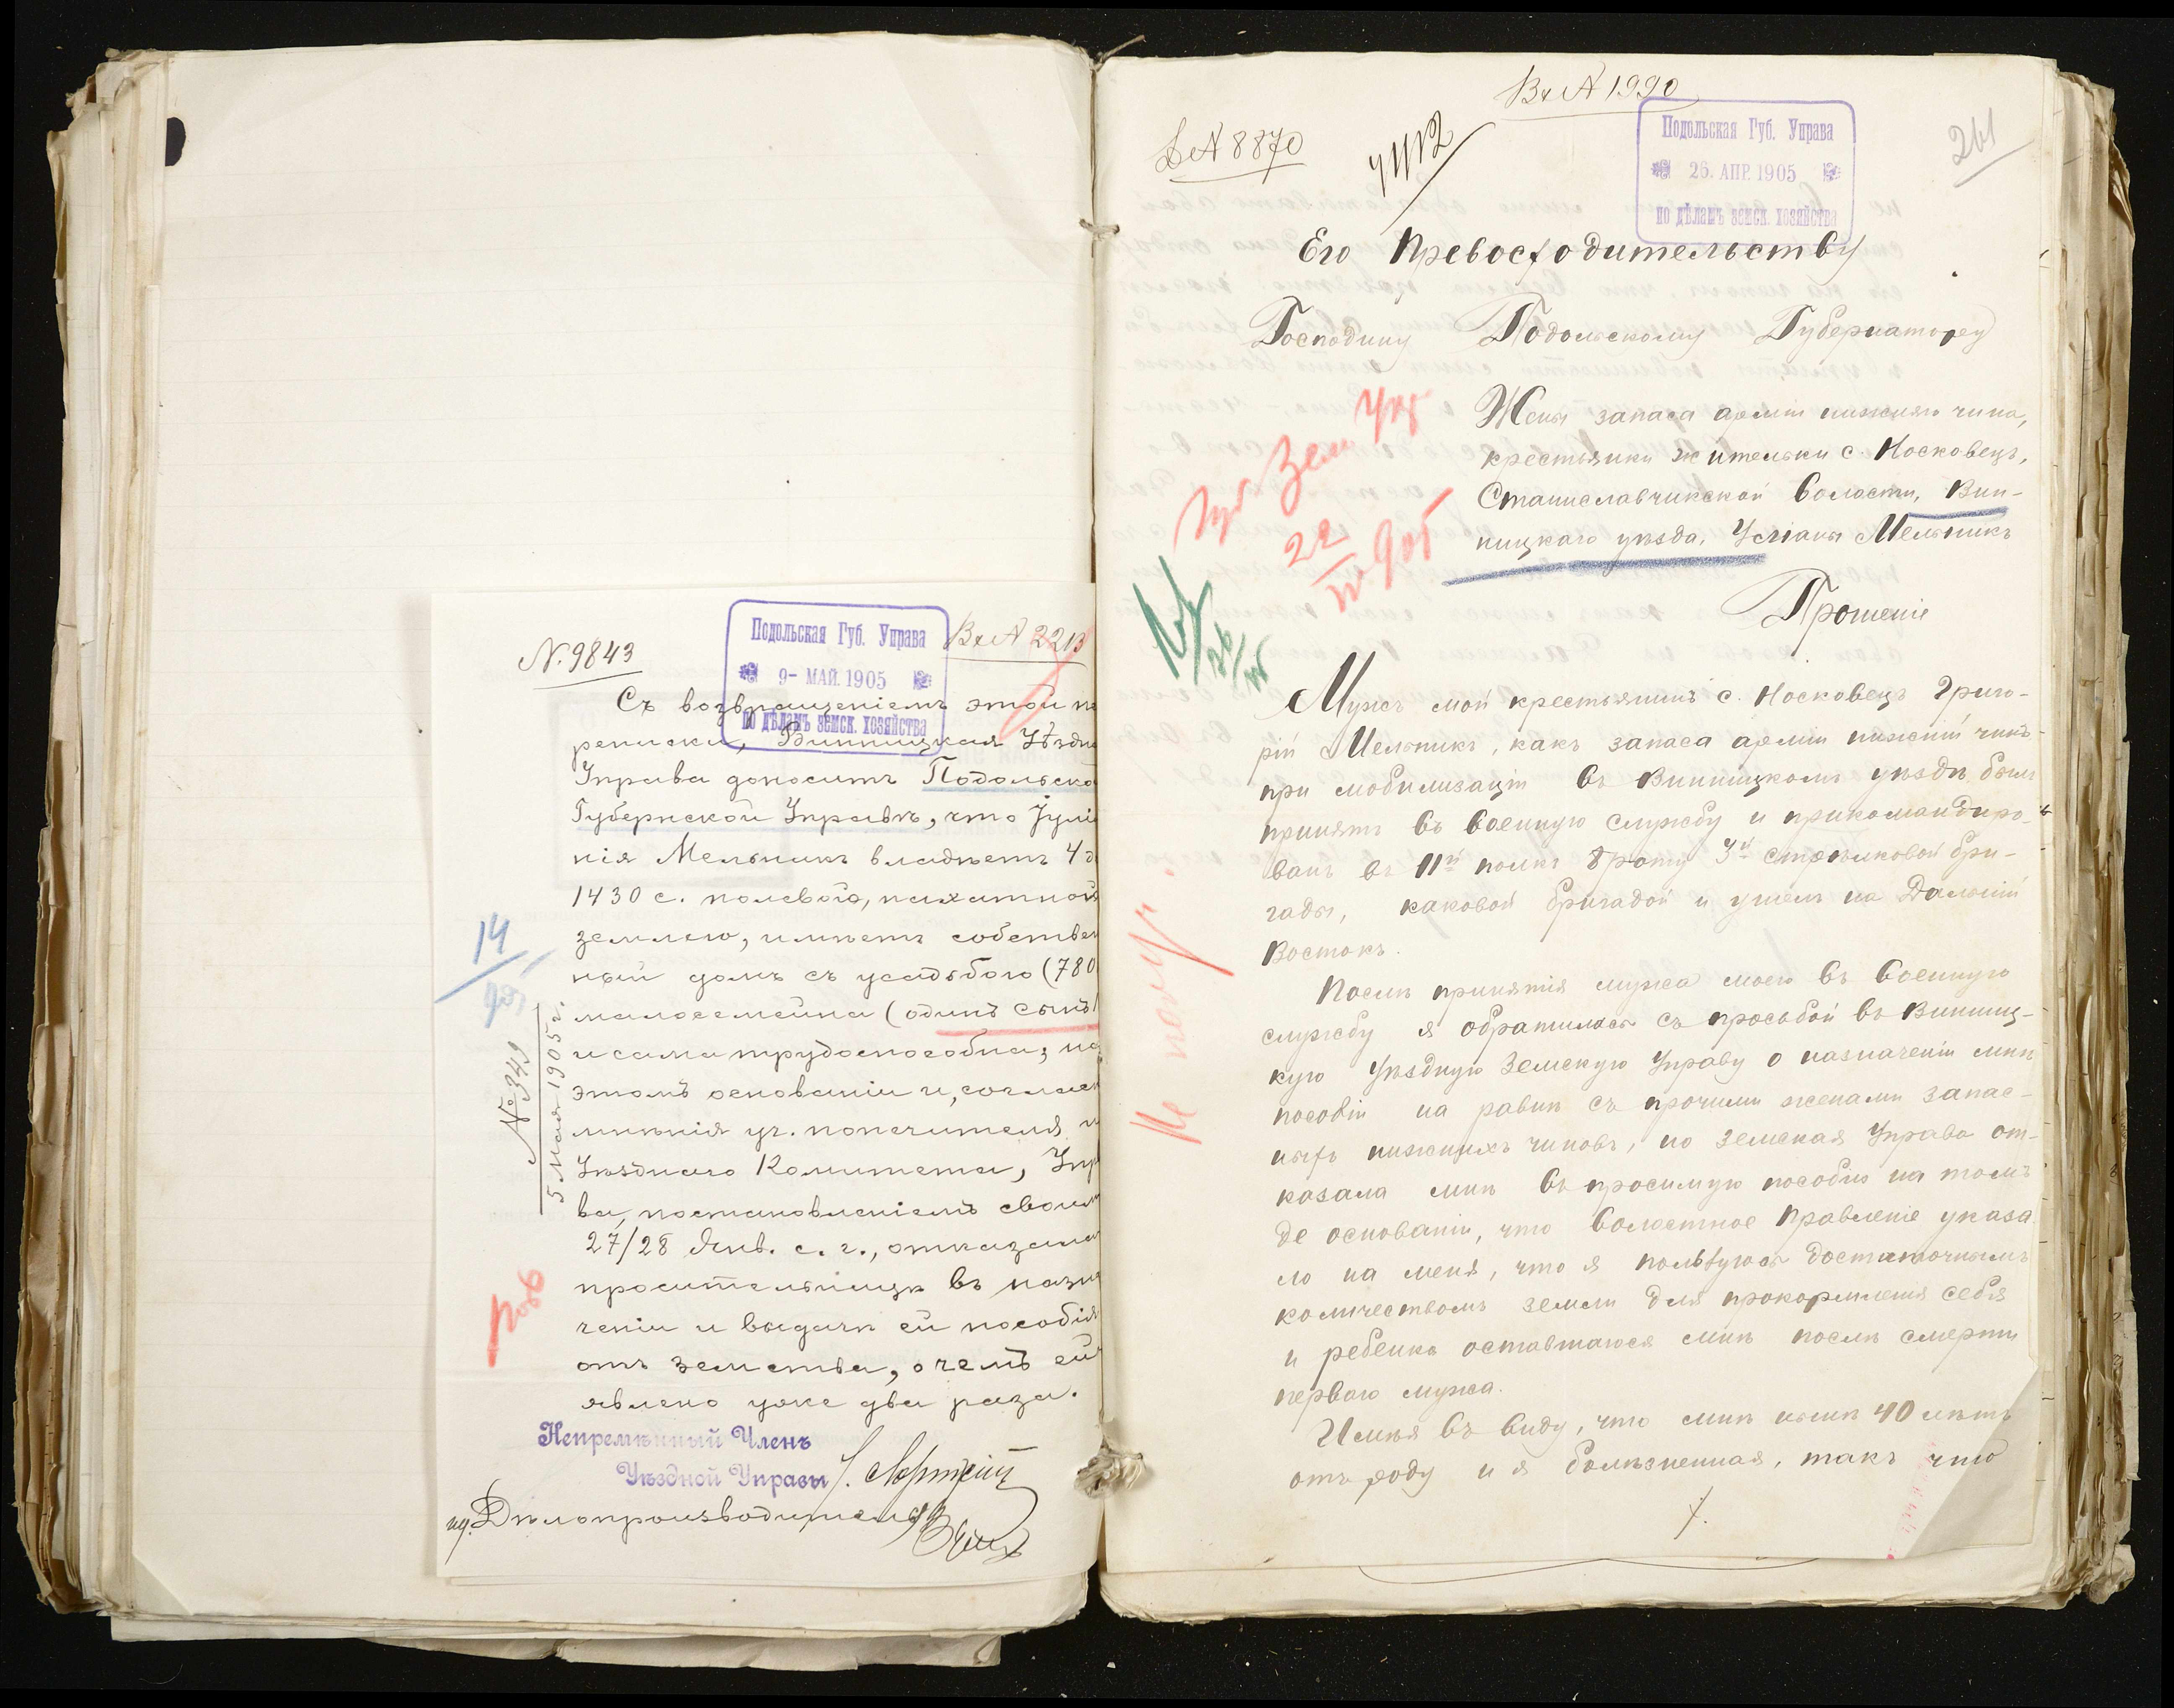 N. 9843
Вх № 2213
Подольская Губ. Управа
9- МАЙ. 1905
по дѣламъ земск. хозяйства
Съ возвращеніемъ этой пе
реписки, Винницкая Уѣздна
Управа доноситъ Подольско
Губернской Управѣ, что Іулі
нія Мельникъ владѣетъ 4 д
1430 с. полевого, пахатной
землею, имѣетъ собствен
ный домъ съ усадьбою (780
малосемейна (одинъ сынъ)
и сама трудоспособна; на
этомъ основаніи и, соглас
мнѣнія уч. попечителя и
Уѣзднаго Комитета, Упр
ва, постановленіемъ своим
27/28 Янв. с. г., отказано
просительницѣ въ назна
ченіи и выдачѣ ей пособія
отъ земства, о чемъ ей
явлено уже два раза.
Непремѣнный Членъ
Уѣздной Управы
ид. Дѣлопроизводитель
14
905
№ 349
5 мая 1905 г.
Вх № 1990
№ 8870
Подольская Губ. Управа
26. АПР. 1905
по дѣламъ земск. хозяйства
261
Его Превосходительству
Господину Подольскому Губернатору
Жены запаса арміи нижняго чина,
крестьянки жительки с. Носковецъ,
Станиславчикской волости, Вин-
ницкаго уѣзда, Улiаны Мельникъ
Губ Зем Упр
22
IV 905
Прошеніе
Мужъ мой крестьянинъ с. Носковецъ Григо-
рій Мельникъ, какъ запаса арміи нижній чинъ-
при мобилизаціи въ Винницкомъ уѣздѣ былъ
принятъ въ военную службу и прикомандиро-
ванъ въ 11й полкъ 8 роту 3й стрѣлковой бри-
гады, каковой бригадой и ушелъ на Дальній
Востокъ.
Послѣ принятія мужа моего въ военную
службу я обратилась съ просьбой въ Винниц-
кую Уѣздную Земскую Управу о назначеніи мнѣ
пособій на равнѣ съ прочими женами запас-
ныхъ нижнихъ чиновъ, но Земская Управа от-
казала мнѣ въ просимую пособію на томъ
де основаніи, что волостное Правленіе указа
ло на меня, что я пользуюсь достаточнымъ
количествомъ земли для прокормленія себя
и ребенка оставшагося мнѣ послѣ смерти
перваго мужа.
Имѣя въ виду, что мнѣ нынѣ 40 лѣтъ
отъ роду и я болѣзненная, такъ что